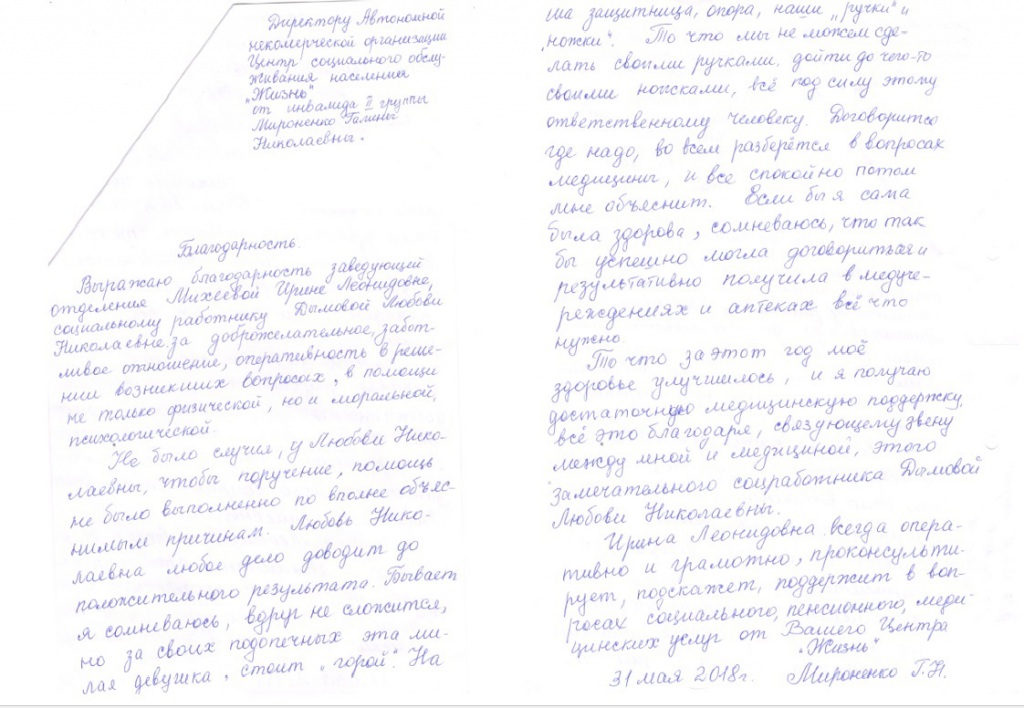 Директору Автономной
некомерческой организации
Центр социального обслу-
живания населения
"Жизнь"
от инвалида II группы
Мироненко Галины
Николаевны.
Благодарность.
Выражаю благодарность заведующей
отделения Михеевой Ирине Леонидовне,
социальному работнику Дымовой Любови
Николаевне за доброжелательное, забот-
ливое отношение, оперативность в реше-
нии возникших вопросах, в помощи
не только физической, но и моральной,
психологической.
Не было случая, у Любови Нико-
лаевны, чтобы поручение, помощь
не было выполненно по вполне объяс-
нимым причинам. Любовь Нико-
лаевна любое дело доводит до
положительного результата. Бывает
я сомневаюсь, вдруг не сложится,
но за своих подопечных эта ми-
лая девушка стоит "горой". На
ша защитница, опора, наши "ручки" и
"ножки". То что мы не можем сде-
лать своими ручками, дойти до чего-то
своими ножками, всё под силу этому
ответственному человеку. Договорится
где надо, во всем разберётся в вопросах
медицины, и все спокойно потом
мне объяснит. Если бы я сама
была здорова, сомневаюсь, что так
бы успешно могла договориться и
результативно получила в медуче-
реждениях и аптеках всё что
нужно.
То что за этот год моё
здоровье улучшилось, и я получаю
достаточную медицинскую поддержку,
всё это благодаря, связующему звену
между мной и медициной, этого
замечательного соцработника Дымовой
Любови Николаевны.
Ирина Леонидовна всегда опера-
тивно и грамотно, проконсульти-
рует, подскажет, поддержит в воп-
росах социального, пенсионного, меди-
цинских услуг от Вашего Центра
"Жизнь"
31 мая 2018г. Мироненко Г.Н.